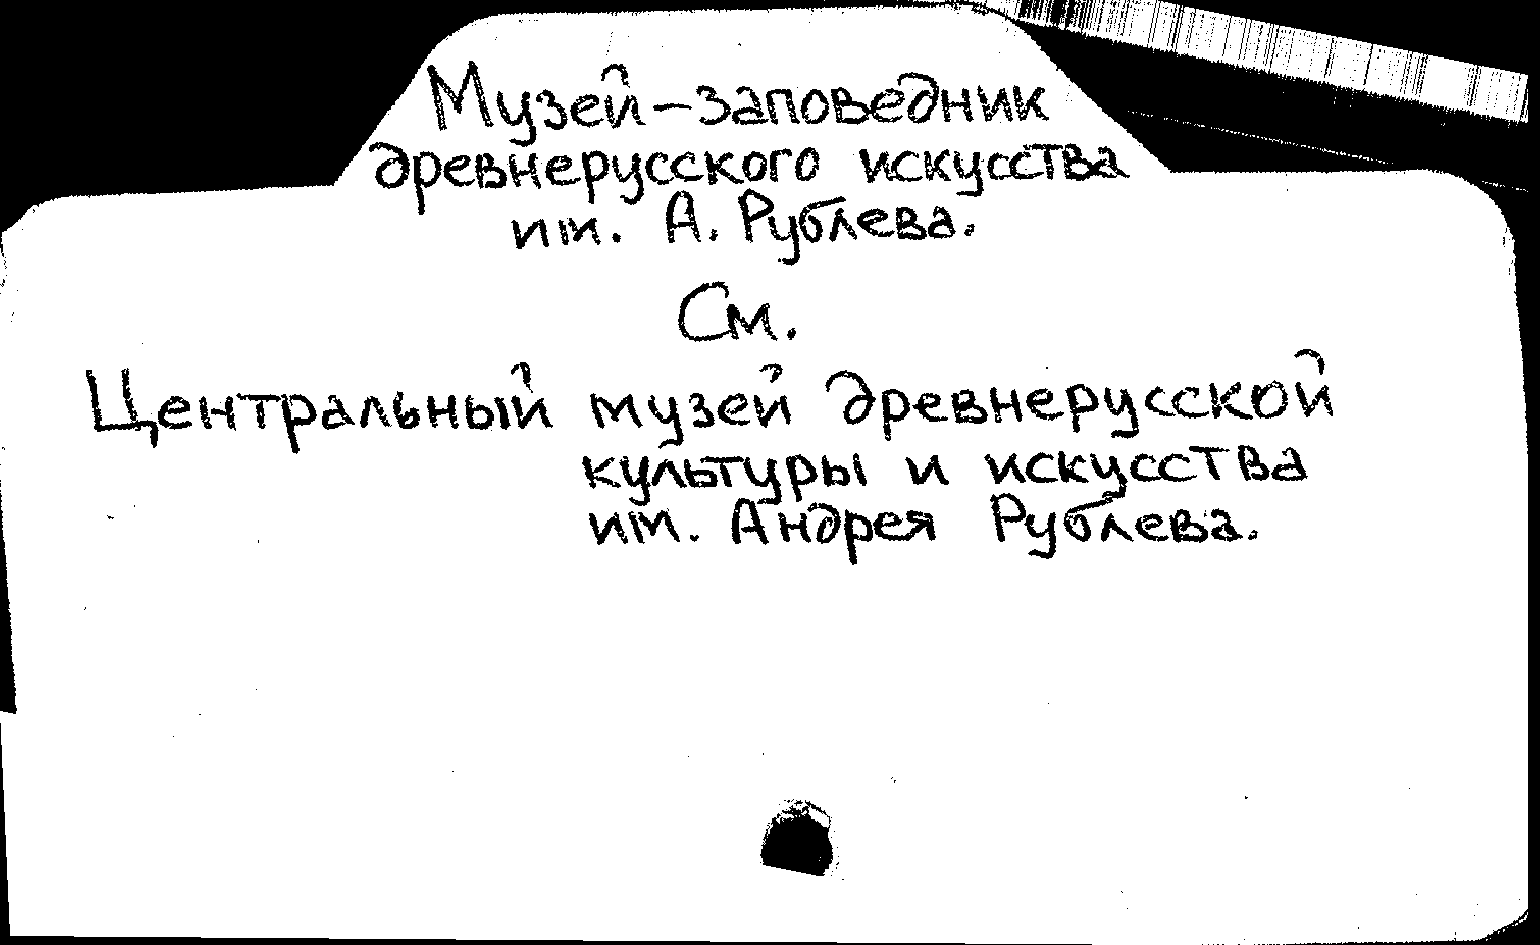 Музей-заповедник
древнерусского искусства
им. А. Рублева.
См.
Центральный музей древнерусской
культуры и искусства
им. Андрея Рублева.